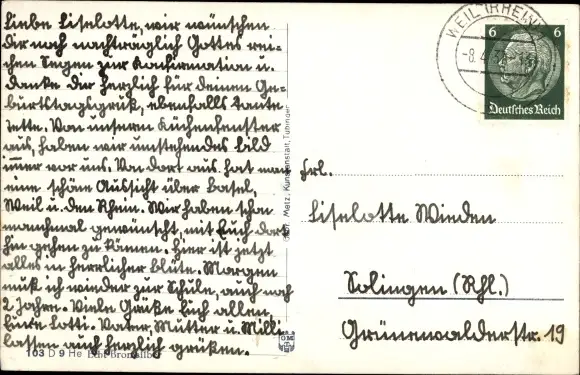 Liebe Liselotte, wir wünschen
Dir noch nachträglich Gottes rei-
chen Segen zur Konfirmation u.
danke Dir herzlich für deinen Ge-
burtstagsgruß, ebenfalls Tante
Jette. Von unserm Küchenfenster
aus, haben wir umstehendes Bild
immer vor uns. Von dort aus hat man
eine schöne Aussicht über Basel,
Weil u. den Rhein. Wir haben schon
manchmal gewünscht, mit Euch dort
hin gehen zu können. Hier ist jetzt
alles in herrlicher Blüte. Morgen
muß ich wieder zur Schule, auch noch
2 Jahre. Viele Grüße Euch allen,
Eure Lotti. Vater, Mutter u. Milli
lassen auch herzlich grüßen.
103 D 9 He Echt Bromsilber
Metz, Kunstanstalt, Tübingen
WEIL (RHEIN)
6 6
Deutsches Reich
Frl.
Liselotte Winden
Solingen (Rhl.)
Grünewalderstr. 19